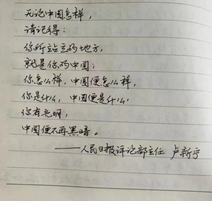 无论中国怎样，
请记得：
你所站立的地方，
就是你的中国；
你怎么样，中国便怎么样，
你是什么，中国便是什么；
你有光明，
中国便不再黑暗。
——人民日报评论部主任 卢新宁